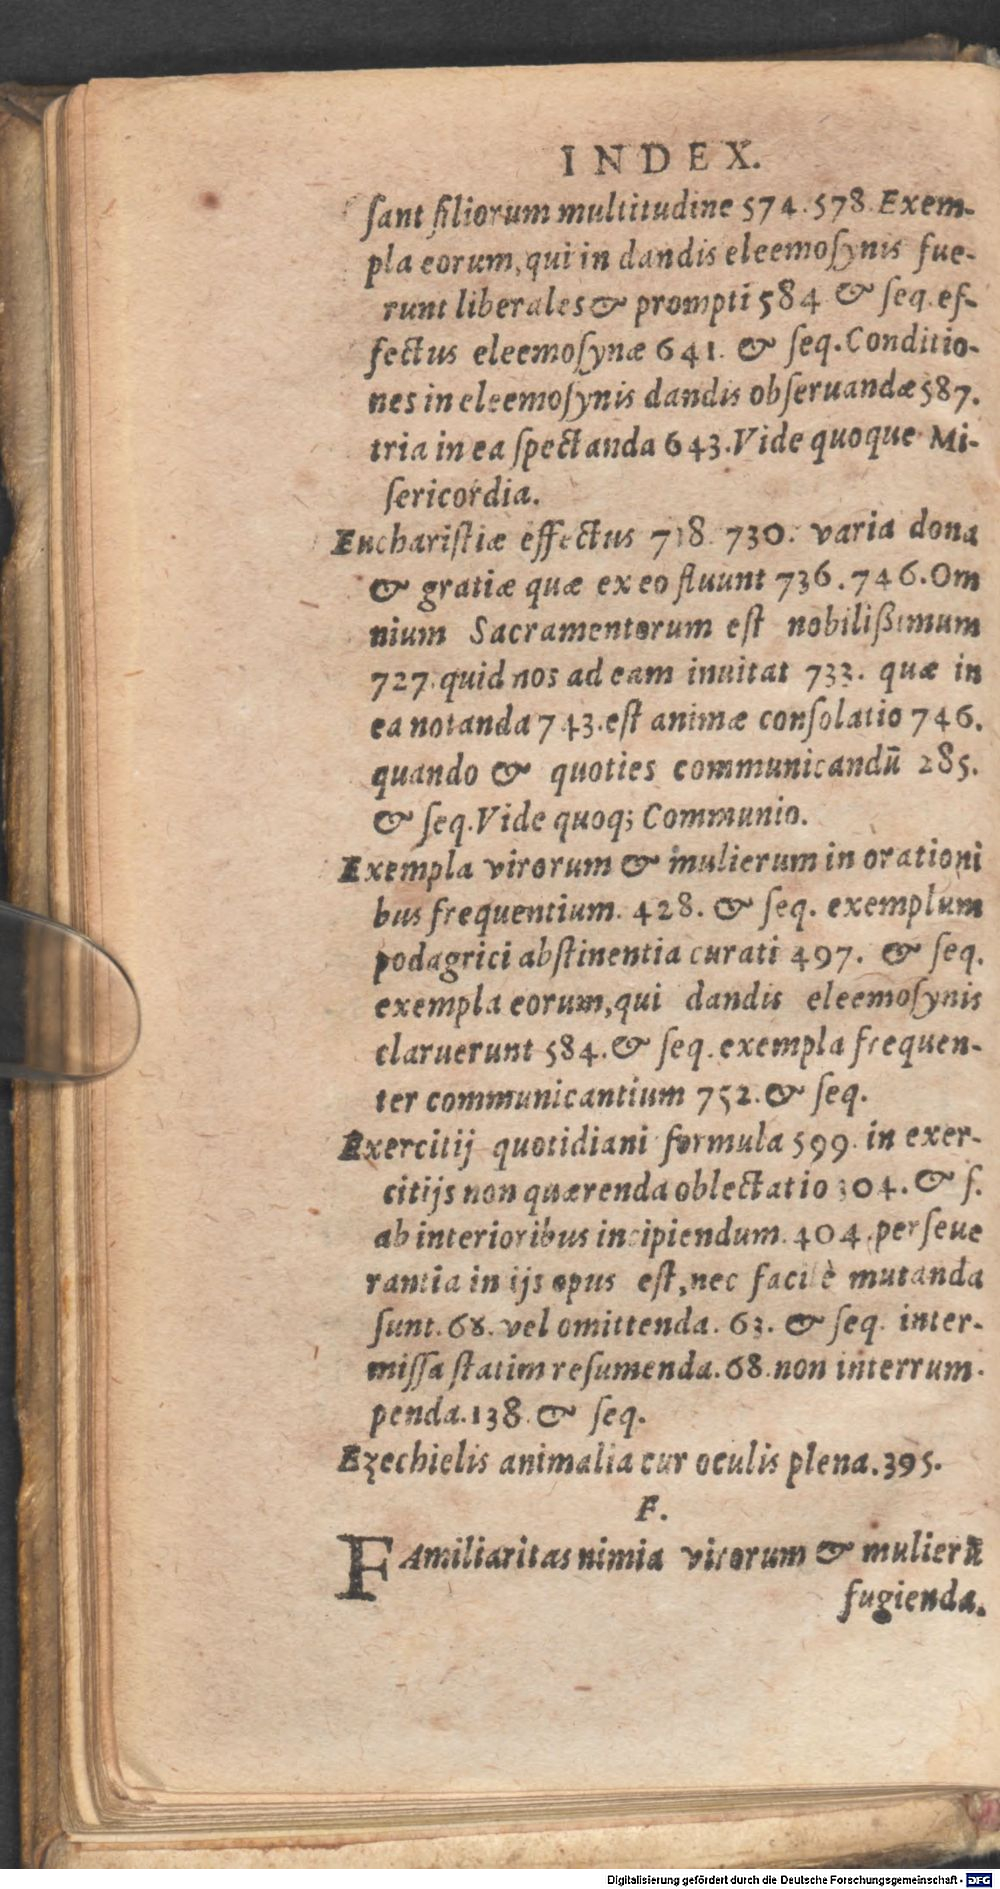 INDEX.
ſant filiorum multitudine 574. 578. Exem-
pla eorum, qui in dandis eleemoſynis fue-
runt liberales & prompti 584 & ſeq. ef-
fectus eleemoſynæ 641. & ſeq. Conditio-
nes in eleemoſynis dandis obſeruandæ 587.
tria in ea ſpectanda 643. Vide quoque Mi-
ſericordia.
Eucharistiæ effectus 718. 730. varia dona
& gratiæ quæ ex eo fluunt 736. 746. Om
nium Sacramentorum eſt nobilißimum
727. quid nos ad eam inuitat 733. quæ in
ea notanda 743. eſt animæ conſolatio 746.
quando & quoties communicandū 285.
& ſeq. Vide quoq; Communio.
Exempla virorum & mulierum in orationi
bus frequentium. 428. & ſeq. exemplum
podagrici abſtinentia curati 497. & ſeq.
exempla eorum, qui dandis eleemoſynis
claruerunt 584. & ſeq. exempla frequen-
ter communicantium 752. & ſeq.
Exercitij quotidiani formula 599. in exer-
citijs non quærenda oblectatio 304. & ſ.
ab interioribus incipiendum. 404. perſeue
rantia in ijs opus eſt, nec facilè mutanda
ſunt. 68. vel omittenda. 63. & ſeq. inter-
miſſa ſtatim reſumenda. 68. non interrum-
penda. 138. & ſeq.
Ezechielis animalia cur oculis plena. 395.
F.
FAmiliaritas nimia virorum & mulierū
fugienda.
Digitalisierung gefördert durch die Deutsche Forschungsgemeinschaft - DFG